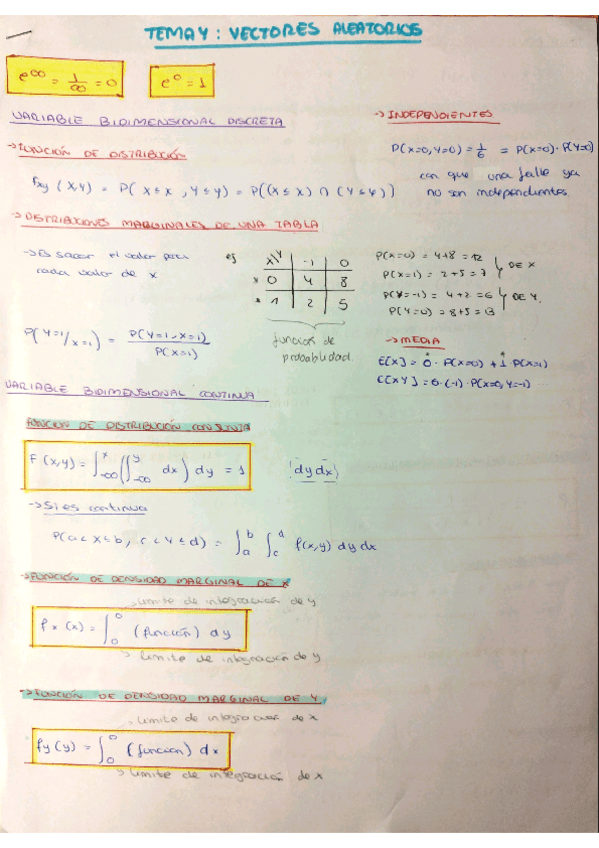 TEMA 4: VECTORES ALEATORIOS
e^∞ = 1/∞ = 0
e^0 = 1
VARIABLE BIDIMENSIONAL DISCRETA
→ FUNCIÓN DE DISTRIBUCIÓN
Fxy (x,y) = P( X ≤ x , Y ≤ y) = P((X ≤ x) ∩ (Y ≤ y))
→ INDEPENDIENTES
P(X=0, Y=0) = 1/6 = P(X=0) · P(Y=0)
con que una falle ya
no son independientes.
→ DISTRIBUCIONES MARGINALES DE UNA TABLA
→ Es sacar el valor para
cada valor de x
ej
X\Y -1 0
0 4 8
1 2 5
función de
probabilidad.
P(X=0) = 4+8 = 12
P(X=1) = 2+5 = 7
DE X
P(Y=-1) = 4+2 = 6
P(Y=0) = 8+5 = 13
DE Y.
P(Y=1/X=1) = P(Y=1, X=1) / P(X=1)
→ MEDIA
E[X] = 0 · P(X=0) + 1 · P(X=1)
E[XY] = 0·(-1) · P(X=0, Y=-1) ...
VARIABLE BIDIMENSIONAL CONTINUA
FUNCIÓN DE DISTRIBUCIÓN CONJUNTA
F (x,y) = ∫_-∞^x (∫_-∞^y dx) dy = 1
(dy dx)
→ Si es continua
P(a < X ≤ b, c < Y ≤ d) = ∫_a^b ∫_c^d f(x,y) dy dx
→ FUNCIÓN DE DENSIDAD MARGINAL DE X
limite de integración de y
fx (x) = ∫_0^0 (función) dy
limite de integración de y
→ FUNCIÓN DE DENSIDAD MARGINAL DE Y
limite de integración de x
fy (y) = ∫_0^0 (función) dx
limite de integración de x